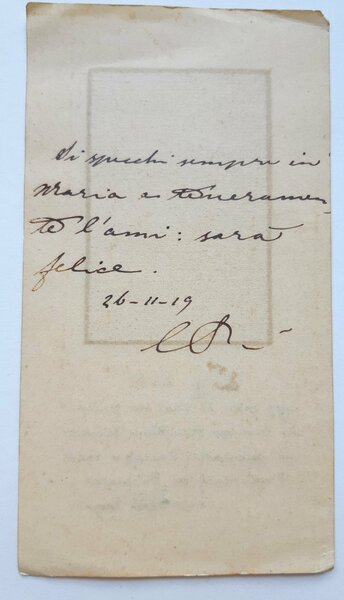 Si specchi sempre in
Maria e teneramen-
te l'ami: sarà
felice.
26-11-19